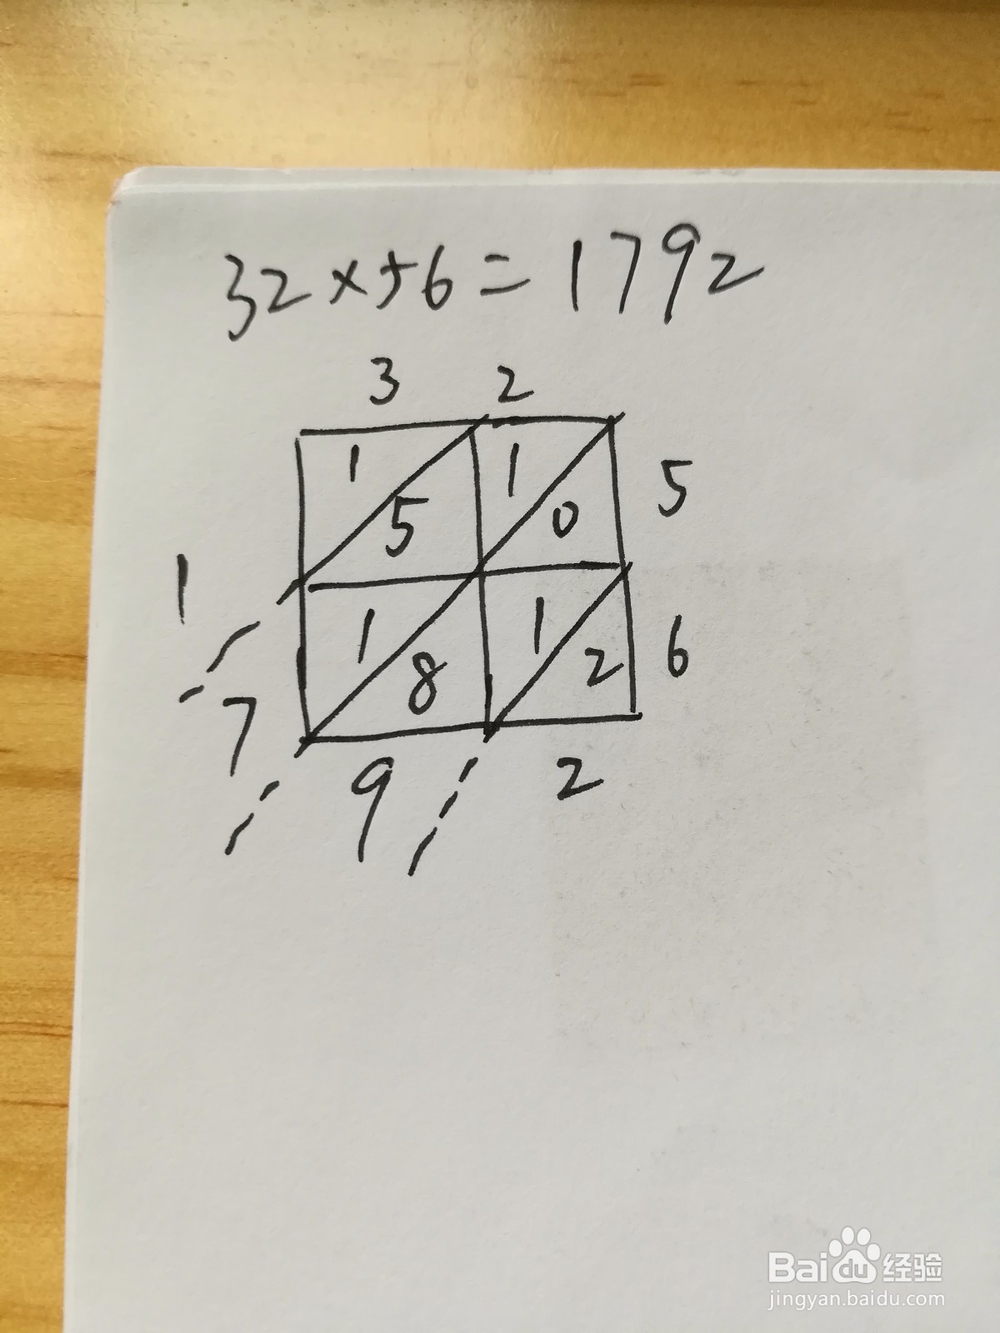 32×56=1792
3 2
1 1 5
5 0
1
1 1 6
8 2
7
9 2
Baidu经验
jingyan.baidu.com